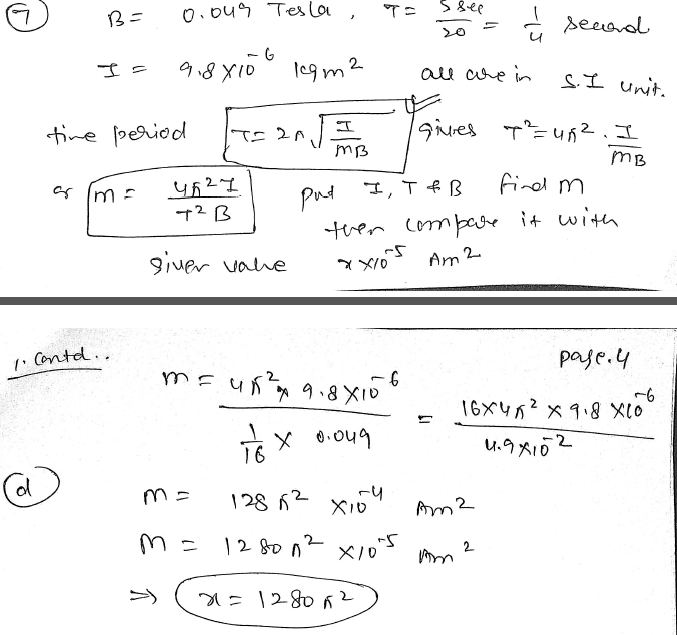 7 B = 0.049 Tesla , T = 5 sec / 20 = 1/4 second
I = 9.8 X 10^-6 kgm^2 all are in S.I unit.
time period T = 2π √(I / mB) gives T^2 = 4π^2 . I / mB
or m = 4π^2 I / T^2 B put I, T & B find m
then compare it with
given value x X10^-5 Am^2
1. Contd.. page.4
m = 4π^2 x 9.8 X10^-6 / (1/16 X 0.049) = 16X4π^2 X 9.8 X10^-6 / 4.9X10^-2
d m = 128 π^2 X10^-4 Am^2
m = 1280 π^2 X10^-5 Am^2
⇒ x = 1280 π^2